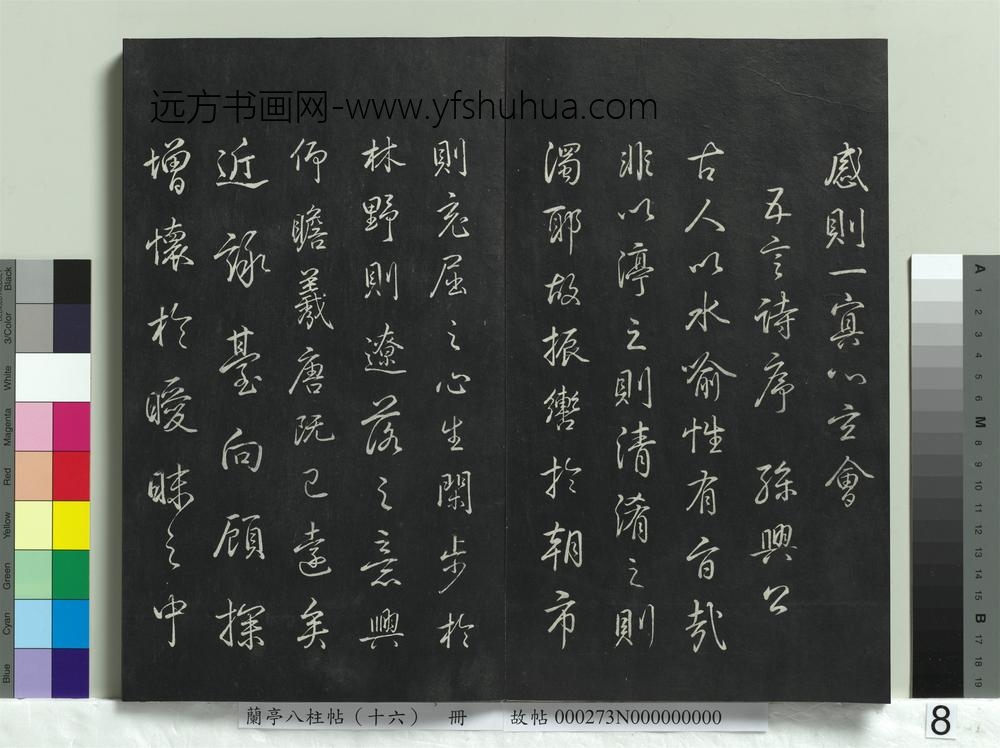 远方书画网-www.yfshuhua.com
感則一寘心立會
五言詩序 孫興公
古人以水喻性有旨哉
非以渟之則清淆之則
濁耶故振轡於朝市
則充屈之心生閑步於
林野則遼落之意興
仰瞻羲唐既已遠矣
近詠臺向顧探
增懷於曖昧之中
蘭亭八柱帖（十六） 冊 故帖 000273N000000000
8
Black
3/Color
White
Magenta
Red
Yellow
Green
Cyan
Blue
A 1 2 3 4 5 6 M 8 9 10 11 12 13 14 15 B 17 18 19